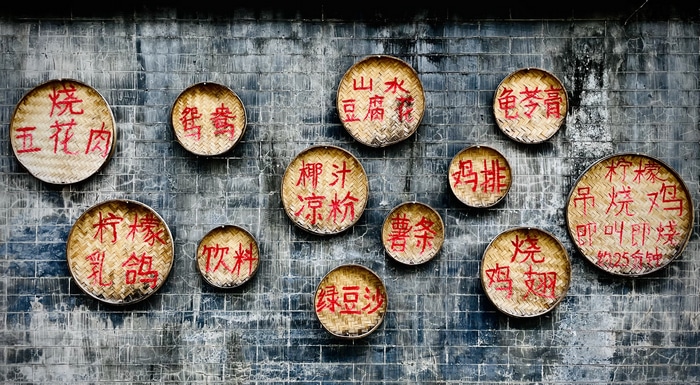 烧
五花肉
鸳鸯
山水
豆腐花
龟苓膏
椰汁
凉粉
鸡排
柠檬
吊烧鸡
即叫即烧
约25分钟
柠檬
乳鸽
饮料
薯条
烧
鸡翅
绿豆沙